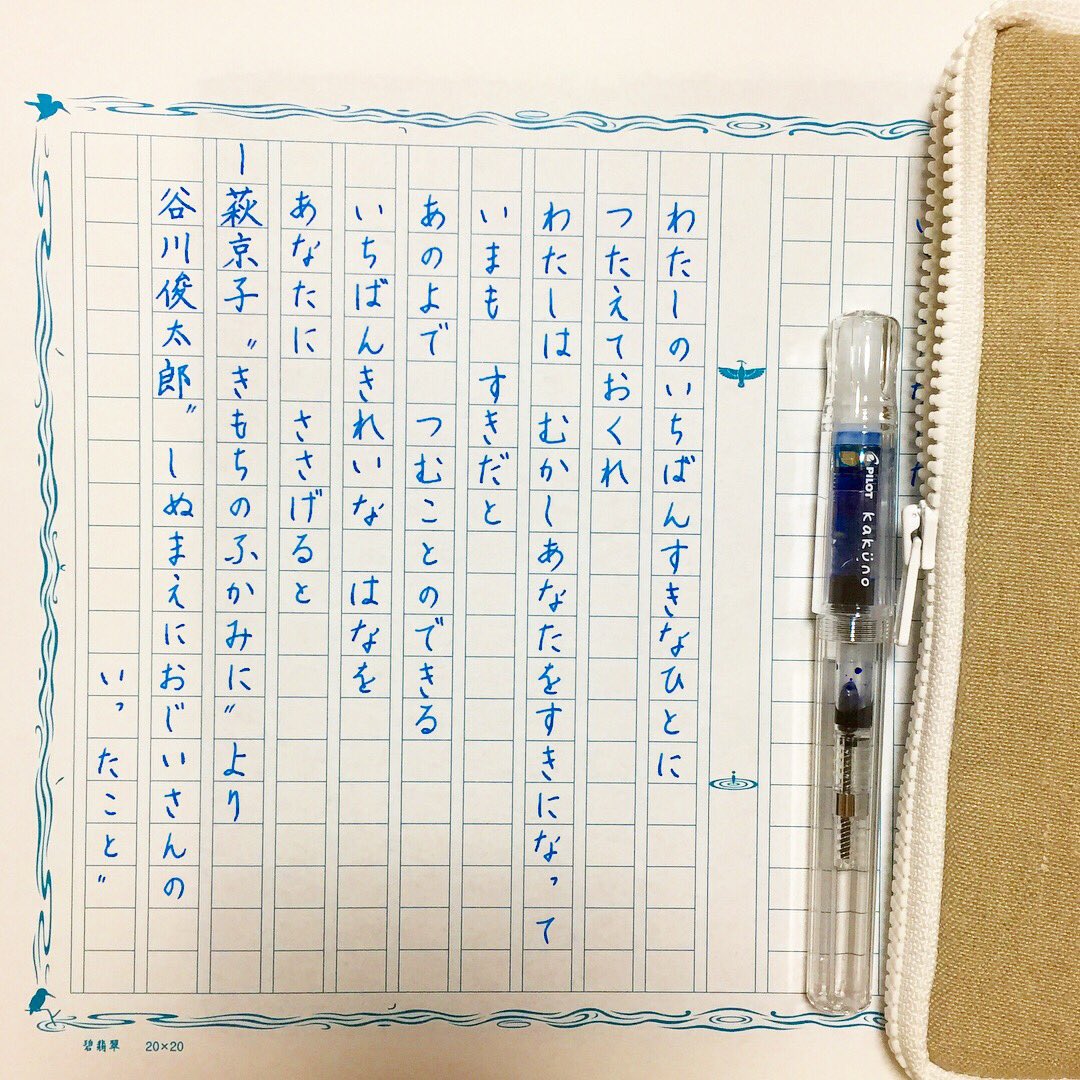 わたしのいちばんすきなひとに
つたえておくれ
わたしは むかしあなたをすきになって
いまも すきだと
あのよで つむことのできる
いちばんきれいな はなを
あなたに ささげると
ー萩京子〝きもちのふかみに〟より
谷川俊太郎〟しぬまえにおじいさんの
いったこと〟
碧翡翠 20×20
PILOT kaküno